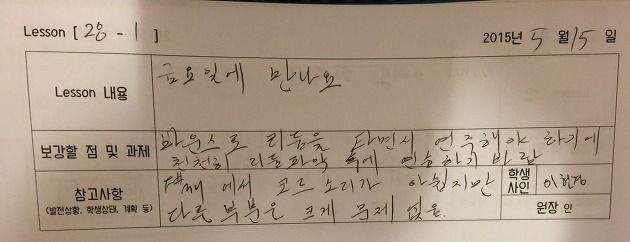 Lesson [ 28 - 1 ] 2015년 5 월 15 일
Lesson 내용 금요일에 만나요
보강할 점 및 과제 바운스로 리듬을 타면서 연주해야 하기에
리듬파악 후에 연습하기 바람
참고사항 에서 코드 소리가 아쉽지만 학생 사인
(발전상황, 학생상태, 계획 등) 다른 부분은 크게 문제 없음. 원장 인